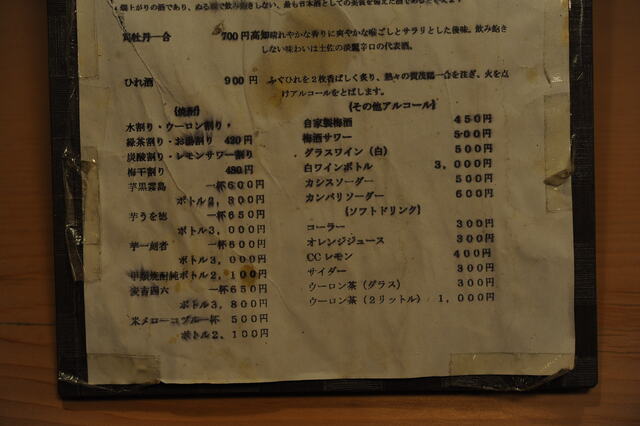 燗上がりの酒であり、ぬる燗で飲み飽きしない、最も日本酒としての
司牡丹一合 700円 高知 晴れやかな香りに爽やかな喉ごしとサラリとした後味。飲み飽き
しない味わいは土佐の淡麗辛口の代表酒。
ひれ酒 900円 ふぐひれを2枚香ばしく炙り、熱々の賀茂鶴一合を注ぎ、火を点
けアルコールをとばします。
(焼酎)
水割り・ウーロン割り・
緑茶割り・お湯割り 420円
炭酸割り・レモンサワー割り
梅干割り 480円
芋黒霧島 一杯600円
ボトル2,800円
芋うを徳 一杯650円
ボトル3,000円
芋一刻者 一杯600円
ボトル3,000円
甲類焼酎純ボトル2,100円
麦吉四六 一杯650円
ボトル3,800円
米メローコヅル一杯 500円
ボトル2,100円
(その他アルコール)
自家製梅酒 450円
梅酒サワー 500円
グラスワイン(白) 500円
白ワインボトル 3,000円
カシスソーダー 500円
カンパリソーダー 600円
(ソフトドリンク)
コーラー 300円
オレンジジュース 300円
CCレモン 400円
サイダー 300円
ウーロン茶(グラス) 300円
ウーロン茶(2リットル) 1,000円